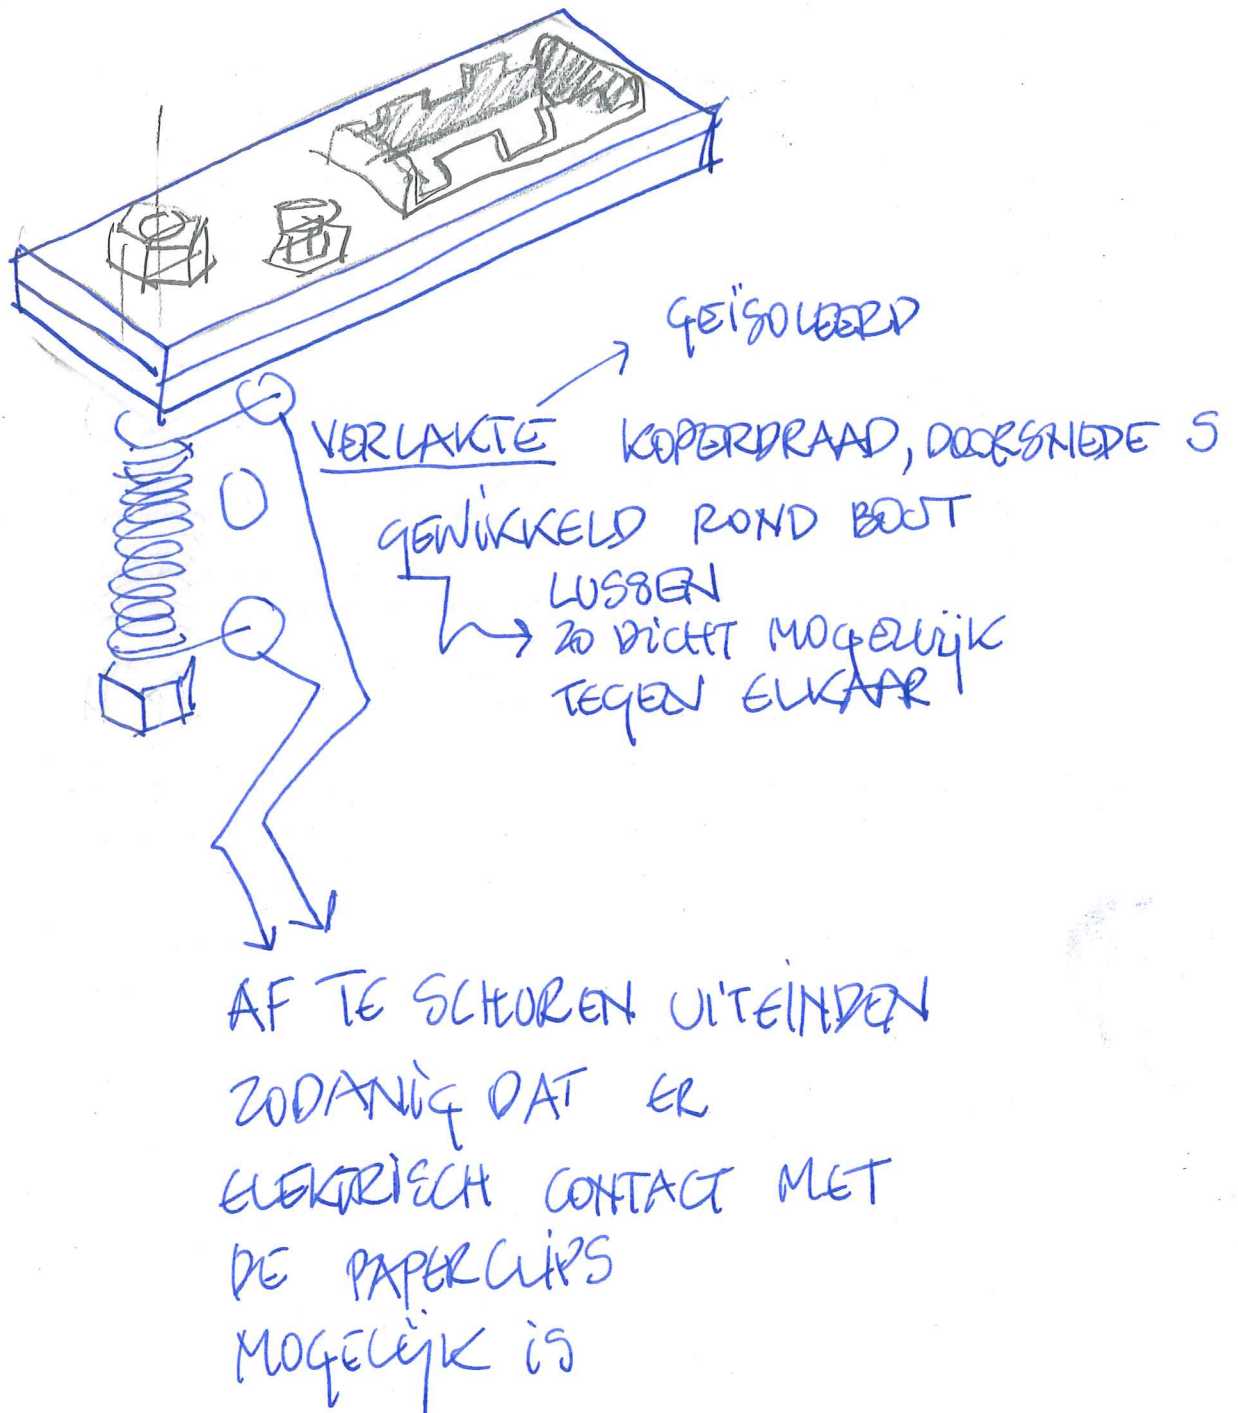 GEÏSOLEERD
VERLAKTE KOPERDRAAD, DOORSNEDE S
GEWIKKELD ROND BOUT
LUSSEN
ZO DICHT MOGELIJK
TEGEN ELKAAR
AF TE SCHUREN UITEINDEN
ZODANIG DAT ER
ELEKTRISCH CONTACT MET
DE PAPERCLIPS
MOGELIJK IS